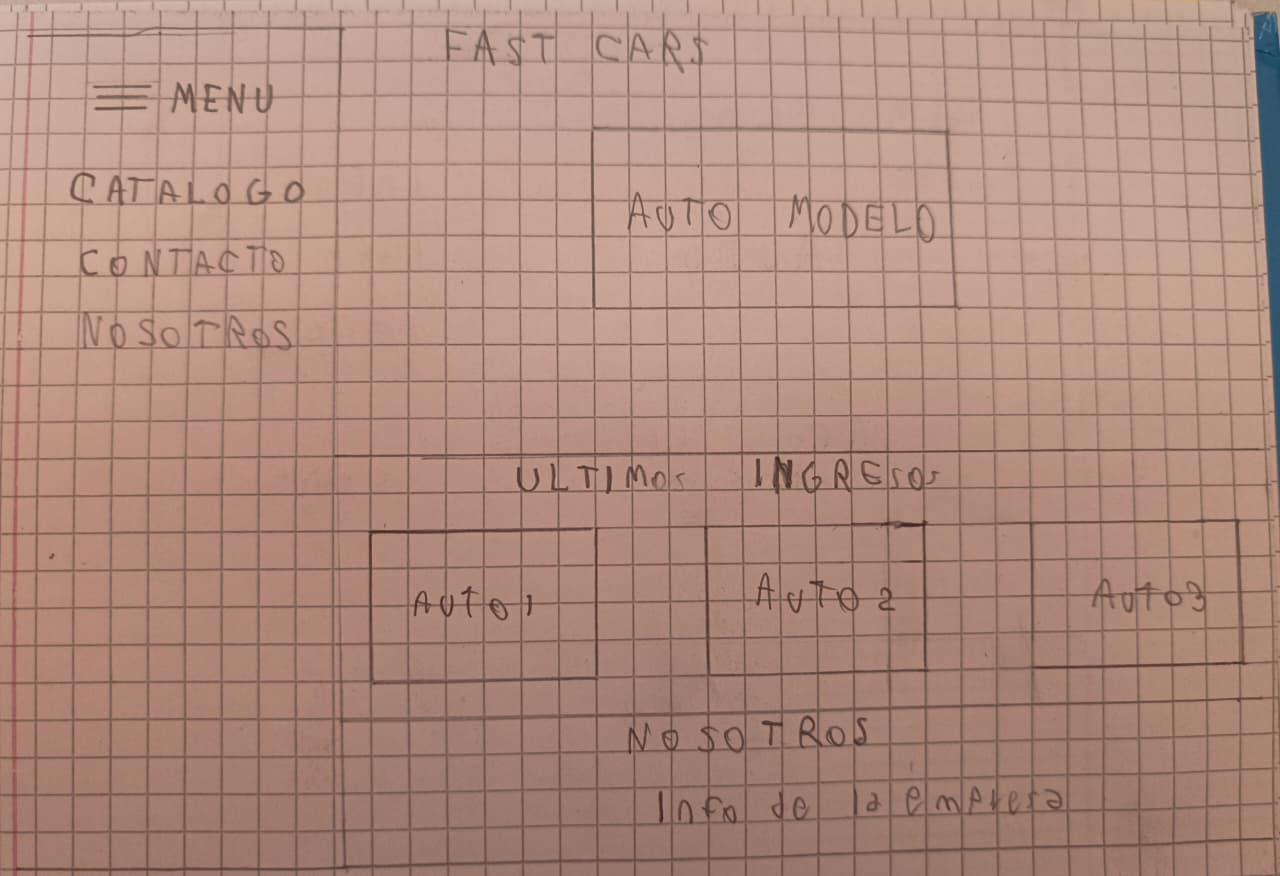 FAST CARS
MENU
CATALOGO
CONTACTO
NOSOTROS
AUTO MODELO
ULTIMOS INGRESOS
AUTO 1
AUTO 2
AUTO 3
NOSOTROS
Info de la empresa